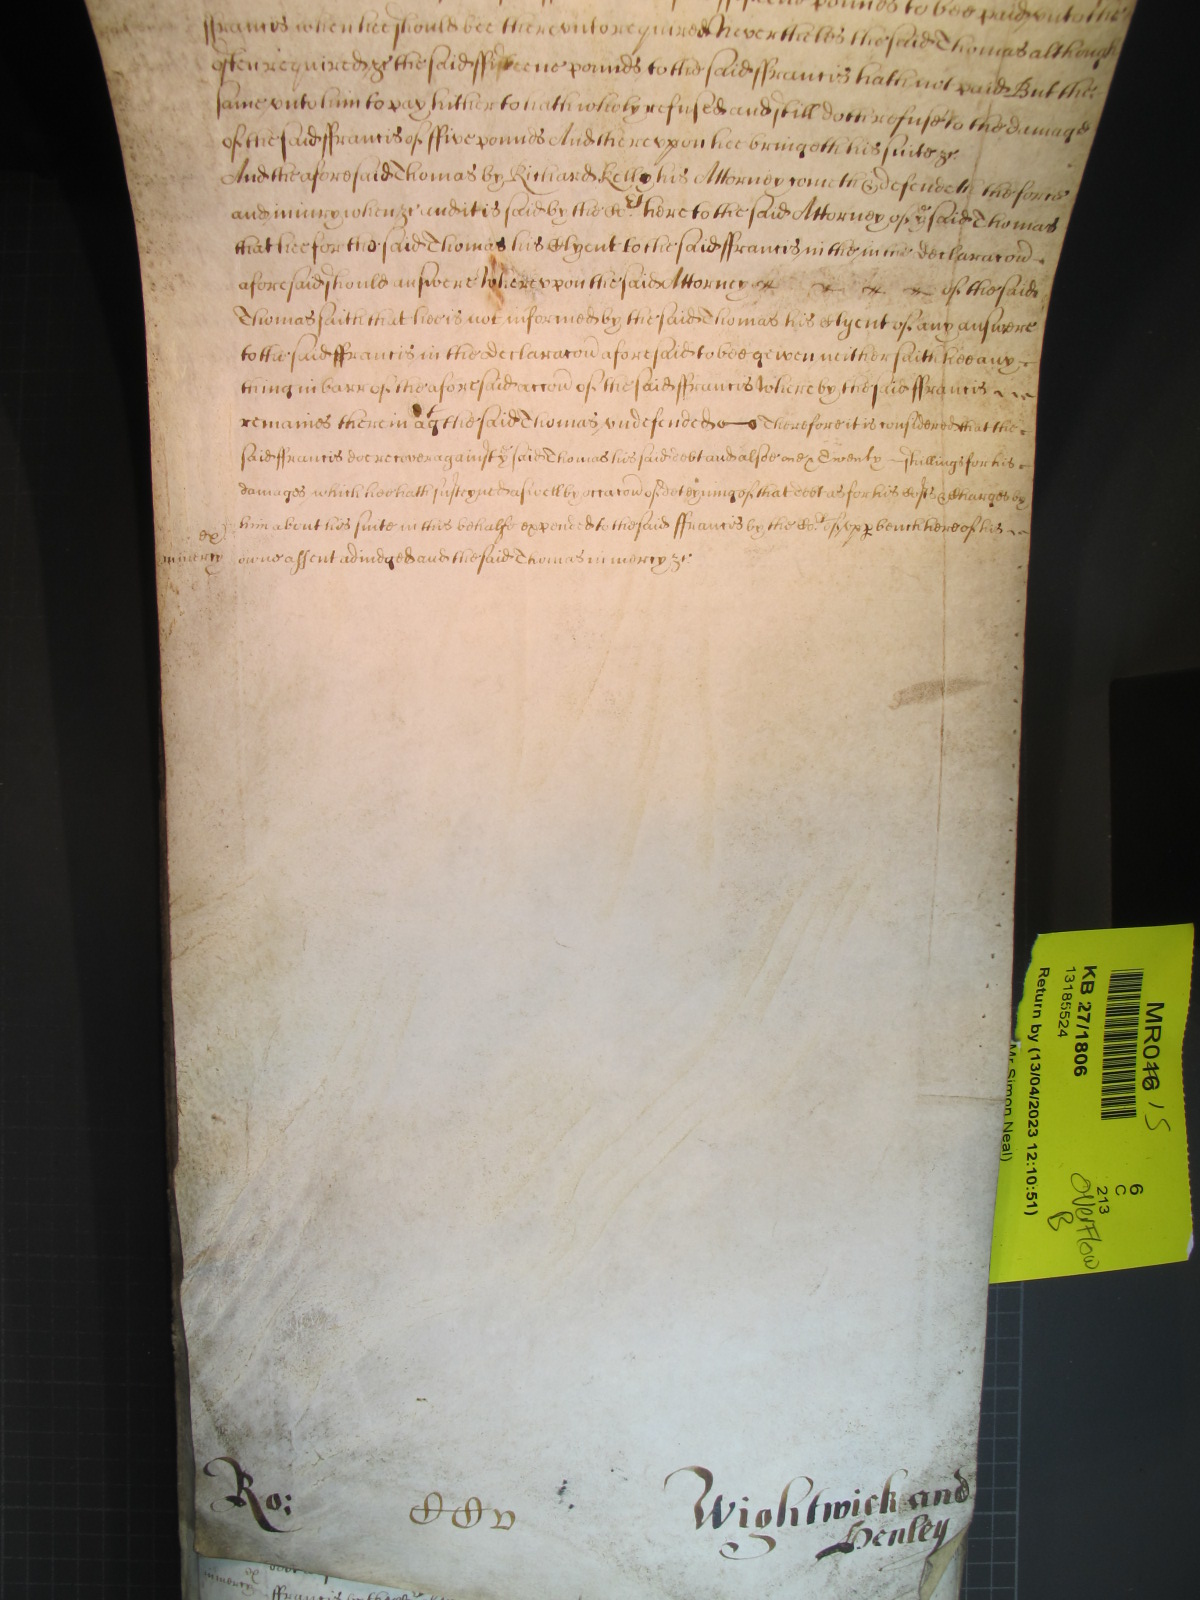 pounds to bee paid unto the
ffrancis when hee should bee thereunto required Neverthelesse the said Thomas although
often required &c the said ffifteene pounds to the said ffrancis hath not paid But the
same unto him to pay hitherto hath wholy refused and still doth refuse to the damage
of the said ffrancis of ffive pounds And thereupon hee bringeth his suite &c
And the aforesaid Thomas by Richard Kelly his Attorney cometh & defendeth the force
and iniury when &c and it is said by the Cort here to the said Attorney of ye said Thomas
that hee for the said Thomas his Clyent to the said ffrancis in the in the declaracon
aforesaid should answere Whereupon the said Attorney of the said
Thomas saith that hee is not informed by the said Thomas his Clyent of any answere
to the said ffrancis in the declaracon aforesaid to bee given neither saith hee any
thing in barr of the aforesaid accon of the said ffrancis Whereby the said ffrancis
remaines therein agt the said Thomas undefended Therefore it is considered that the
said ffrancis doe recover against ye said Thomas his said debt and alsoe Twenty shillings for his
damages which hee hath susteyned aswell by occacon of deteyning of that debt as for his Costs & Charges by
him about his suite in this behalfe expended to the said ffrancis by the Cort of upp bench here of his
owne assent adiudged and the said Thomas in mercy &c
in mercy
MR046 15
KB 27/1806
13185524
Return by (13/04/2023 12:10:51)
Mr Simon Neal)
6
C
213
Overflow
B
Ro:
Wightwick and
Henley
in mercy
ffrancis